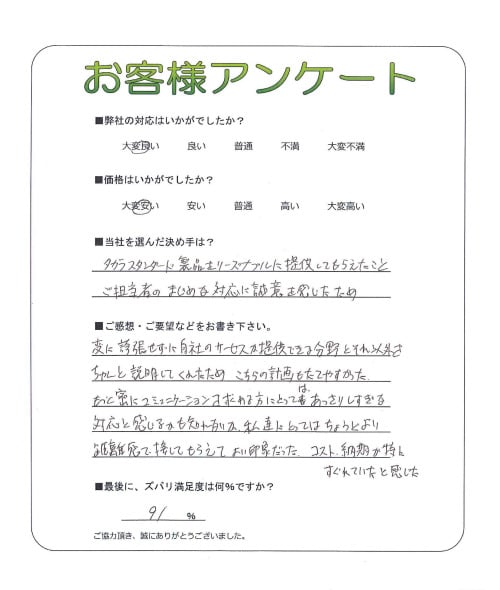 お客様アンケート
■弊社の対応はいかがでしたか?
大変良い 良い 普通 不満 大変不満
■価格はいかがでしたか?
大変安い 安い 普通 高い 大変高い
■当社を選んだ決め手は?
タカラスタンダード製品をリーズナブルに提供してもらえたこと
ご担当者のまじめな対応に誠意を感じたため
■ご感想・ご要望などをお書き下さい。
変に誇張せずに自社のサービスが提供できる分野とそれ以外を
ちゃんと説明してくれたため こちらの計画もたてやすかった。
もっと密にコミュニケーションをとれる方にとっては あっさりしすぎる
対応と感じるかも知れないが、私達にとってはちょうどよい
距離感で接してもらえて よい印象だった。コスト、納期が特に
すぐれていたと感じた
■最後に、ズバリ満足度は何%ですか?
91 %
ご協力頂き、誠にありがとうございました。